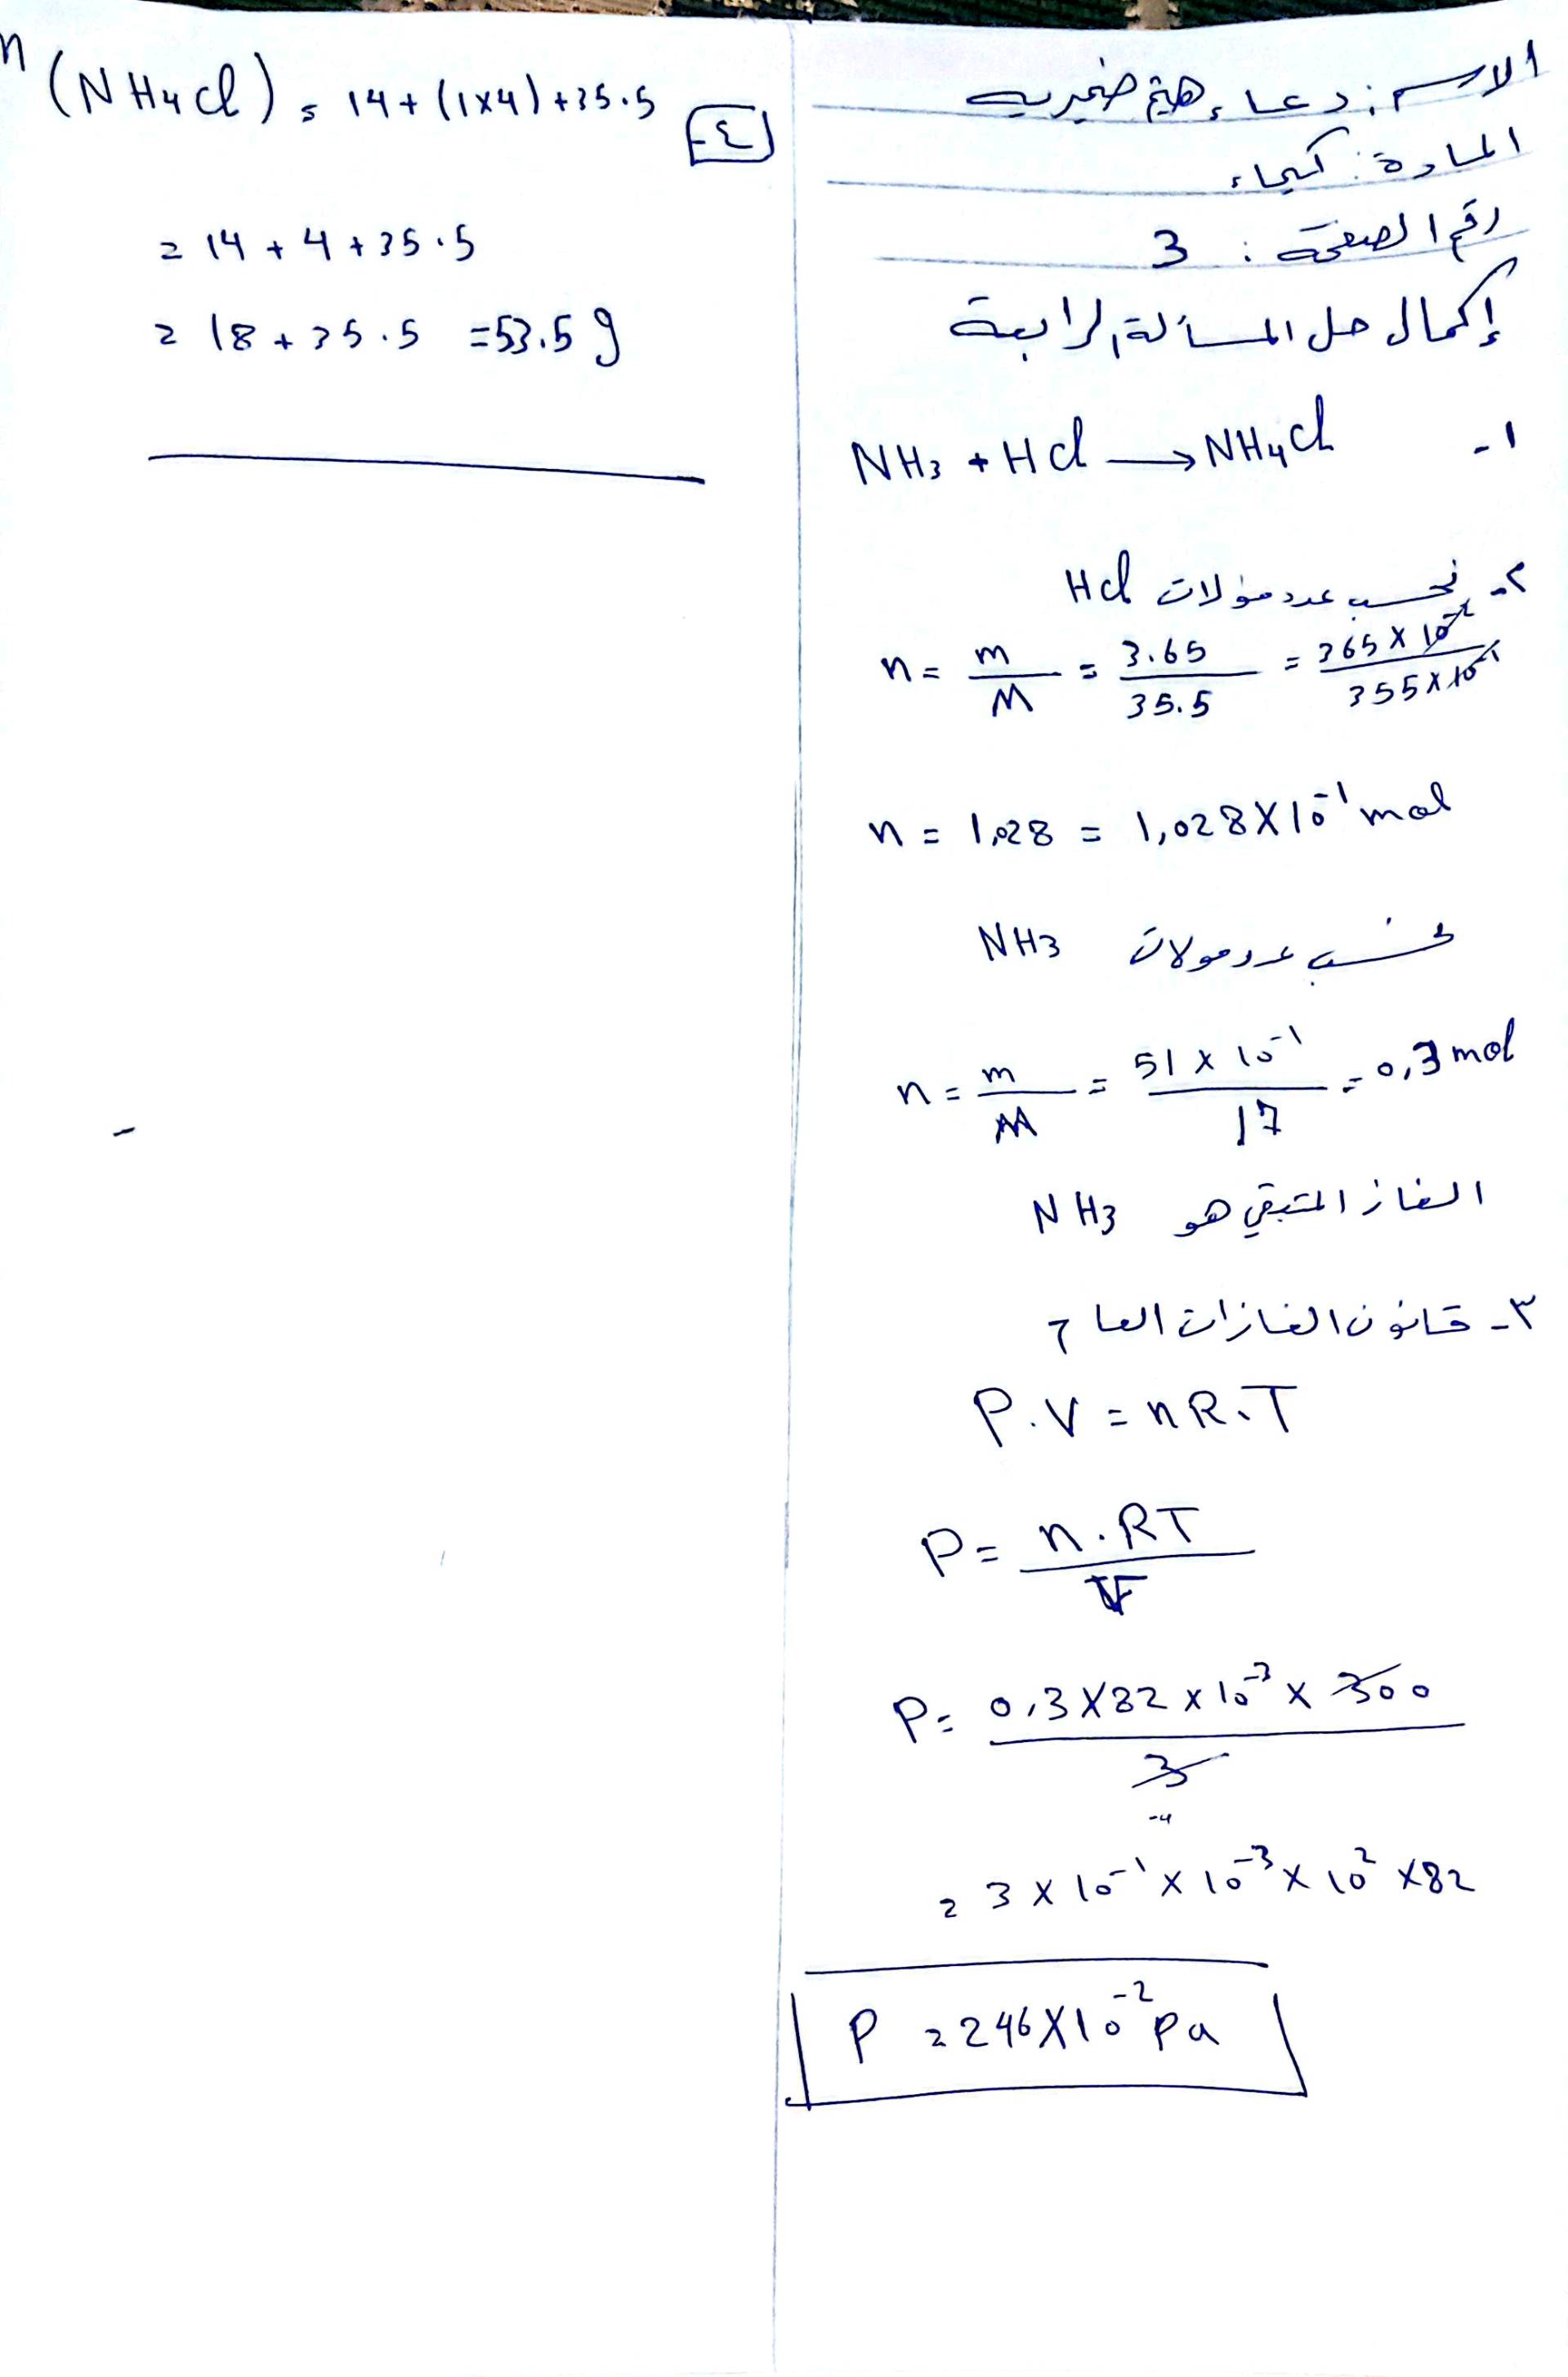 الاسم: دعاء هيثم ضميرية
المادة: كيمياء
رقم الصفحة: 3
إكمال حل المسألة الرابعة
١- NH3 + HCl → NH4Cl
٢- نحسب عدد مولات HCl
n = m/M = 3.65/35.5 = 365 × 10^-2 / 355 × 10^-1
n = 1,028 = 1,028 × 10^-1 mol
نحسب عدد مولات NH3
n = m/M = 51 × 10^-1 / 17 = 0,3 mol
الغاز المتبقي هو NH3
٣- قانون الغازات العام
P.V = nR.T
P = n.RT / V
P = 0,3 × 82 × 10^-3 × 300 / 3
-4
= 3 × 10^-1 × 10^-3 × 10^2 × 82
P = 246 × 10^-2 Pa
٤-
n (NH4Cl) = 14 + (1×4) + 35.5
= 14 + 4 + 35.5
= 18 + 35.5 = 53.5 g